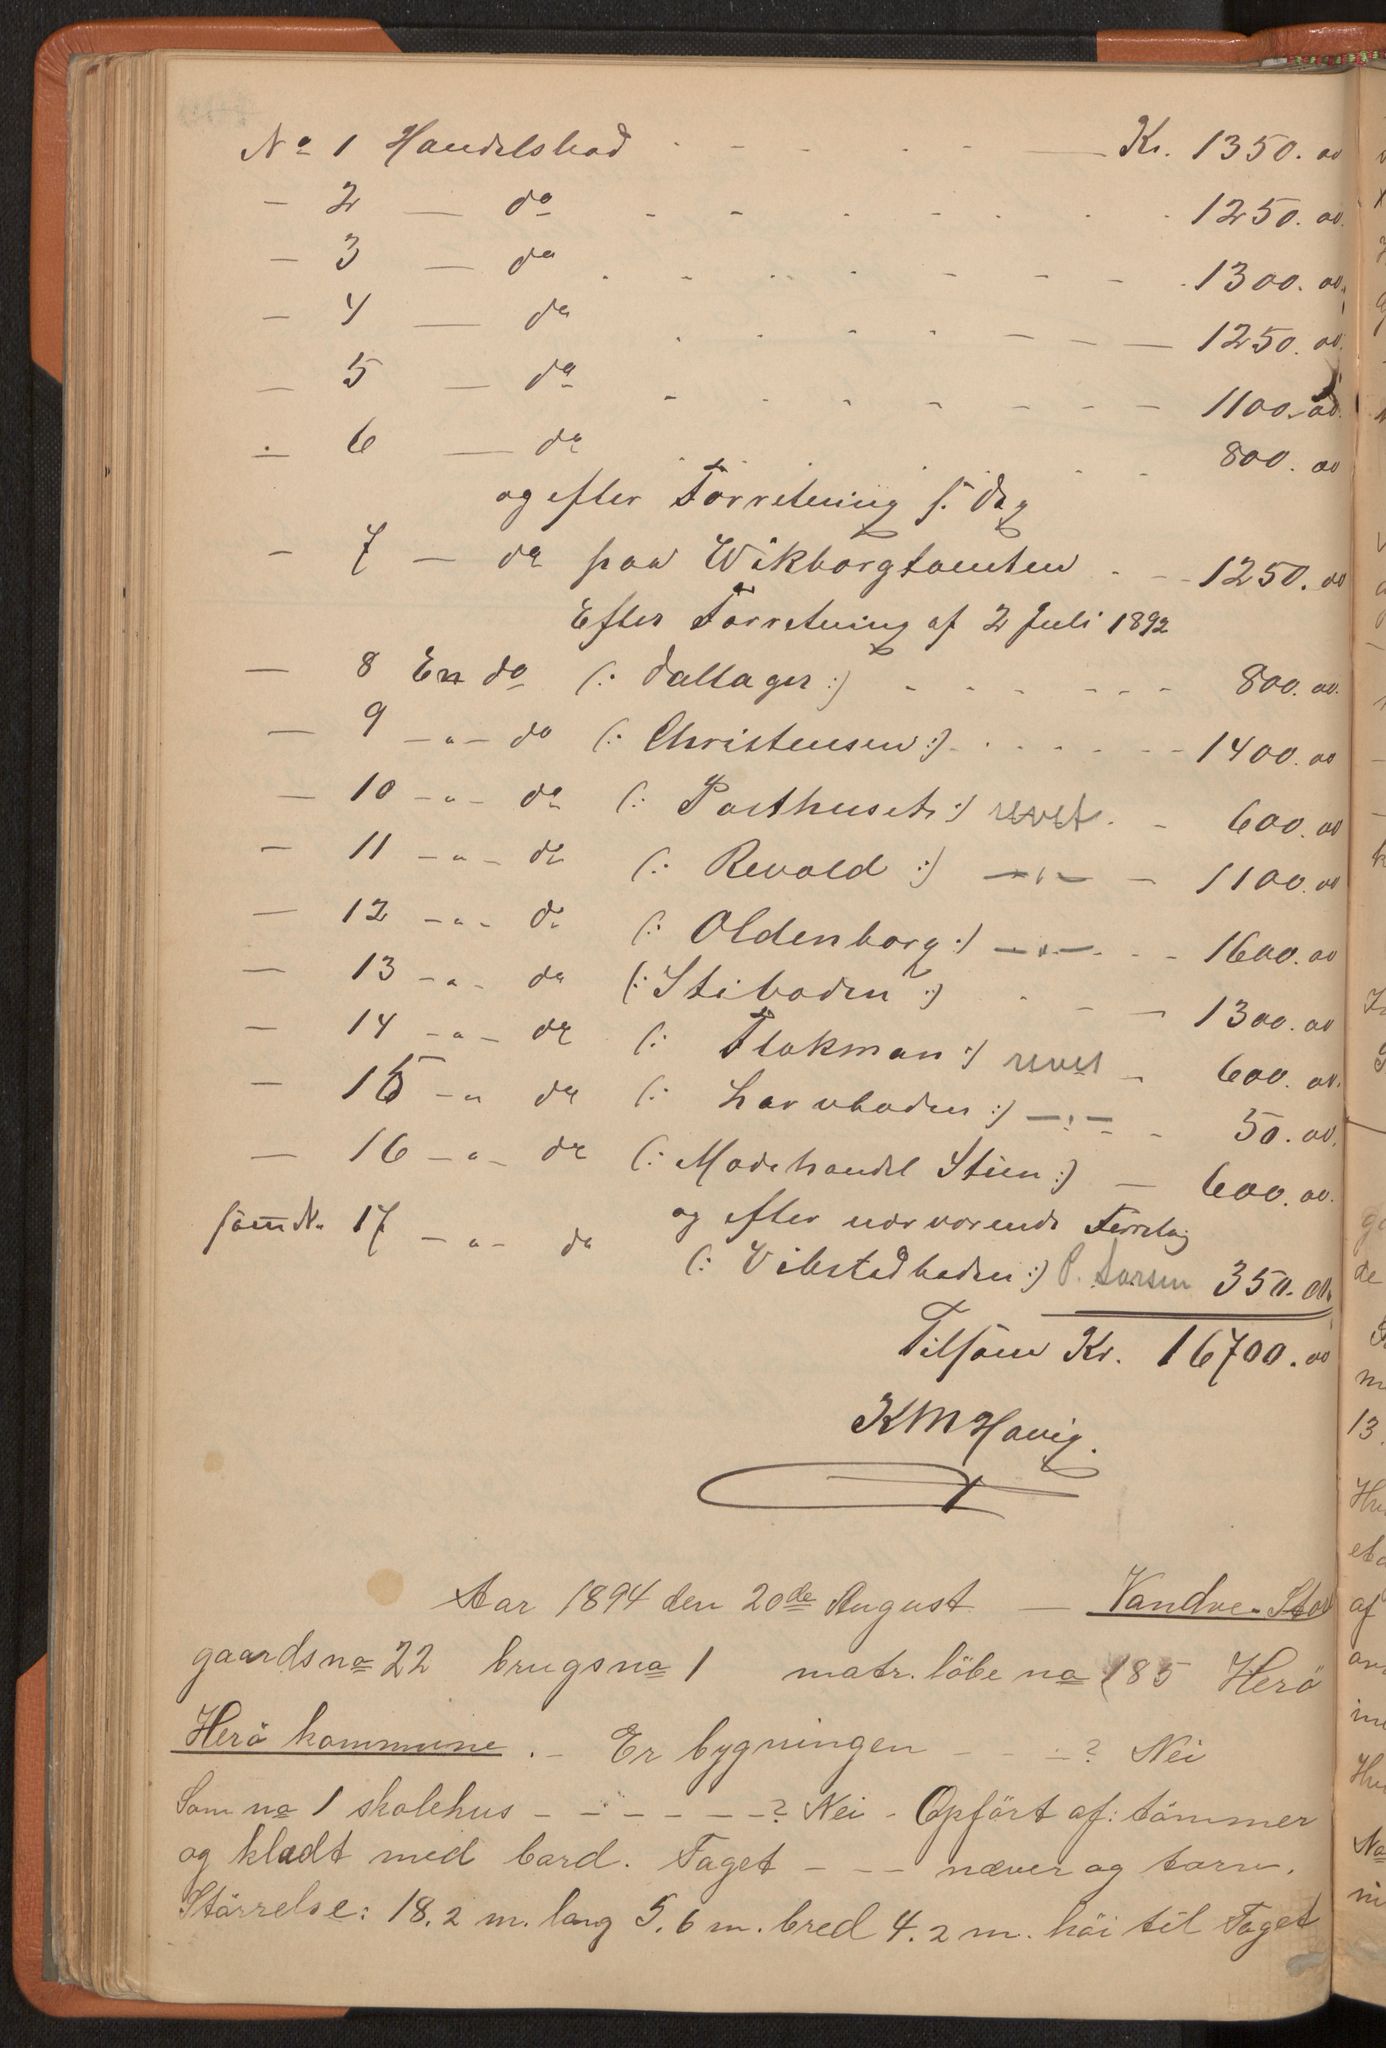 No 1 Handelsbod - - - - - Kr. 1350. 00
- 2 — do - - - - - 1250. 00.
- 3 — do - - - - - 1300. 00.
- 4 — do - - - - - 1250. 00.
- 5 — do - - - - - 1100. 00.
- 6 — do - - - 800. 00
og efter Forretning f. Dag
- 7 — do paa Wikborgtomten - - 1250. 00
Efter Forretning af 2 Juli 1892
- 8 En do (: Dallager :) - - - - - 800. 00.
- 9 -"- do (: Christensen :) - - - - - 1400. 00
- 10 -"- do (: Posthuset :) revet - - 600. 00
- 11 -"- do (: Revold :) -"- - 1100. 00
- 12 -"- do (: Oldenborg :) -"- - - 1600. 00
- 13 -"- do (: Stiboden :) - - - 1300. 00
- 14 -"- do (: Flokman :) revet - 600. 00.
- 15 -"- do (: Larvboden :) -"- - 50. 00.
- 16 -"- do (: Modehandel Stien :) - 600. 00.
og efter nærværende Forretng
som No 17 -"- do (: Vibstadboden :) P. Larsen 350. 00.
Tilsam Kr. 16700. 00
KMHavig.
Aar 1894 den 20de August — Vandve Stor
gaardsno 22 brugsno 1 matr. löbe no 185 Herö
Herö kommune. - Er bygningen - - -? Nei
Som no 1 skolehus - - - - - -? Nei - Opfört af: tömmer
og klædt med bord. Taget - - - næver og torv.
Störrelse: 18.2 m. lang 5.6 m. bred 4.2 m. höi til Taget